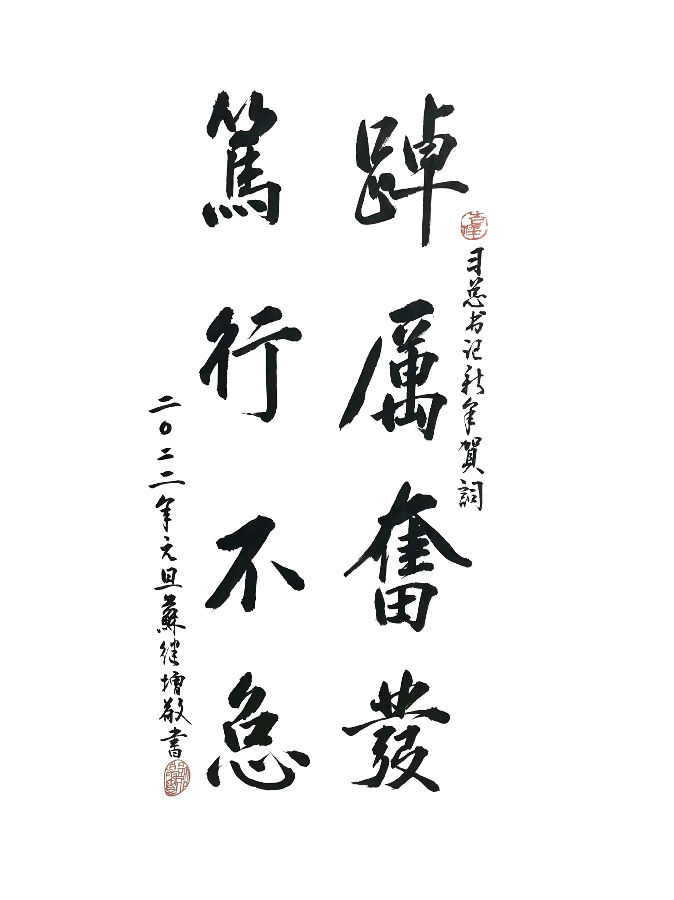 习总书记新年賀詞
踔厲奮發
篤行不怠
二〇二二年元旦蘇继增敬書